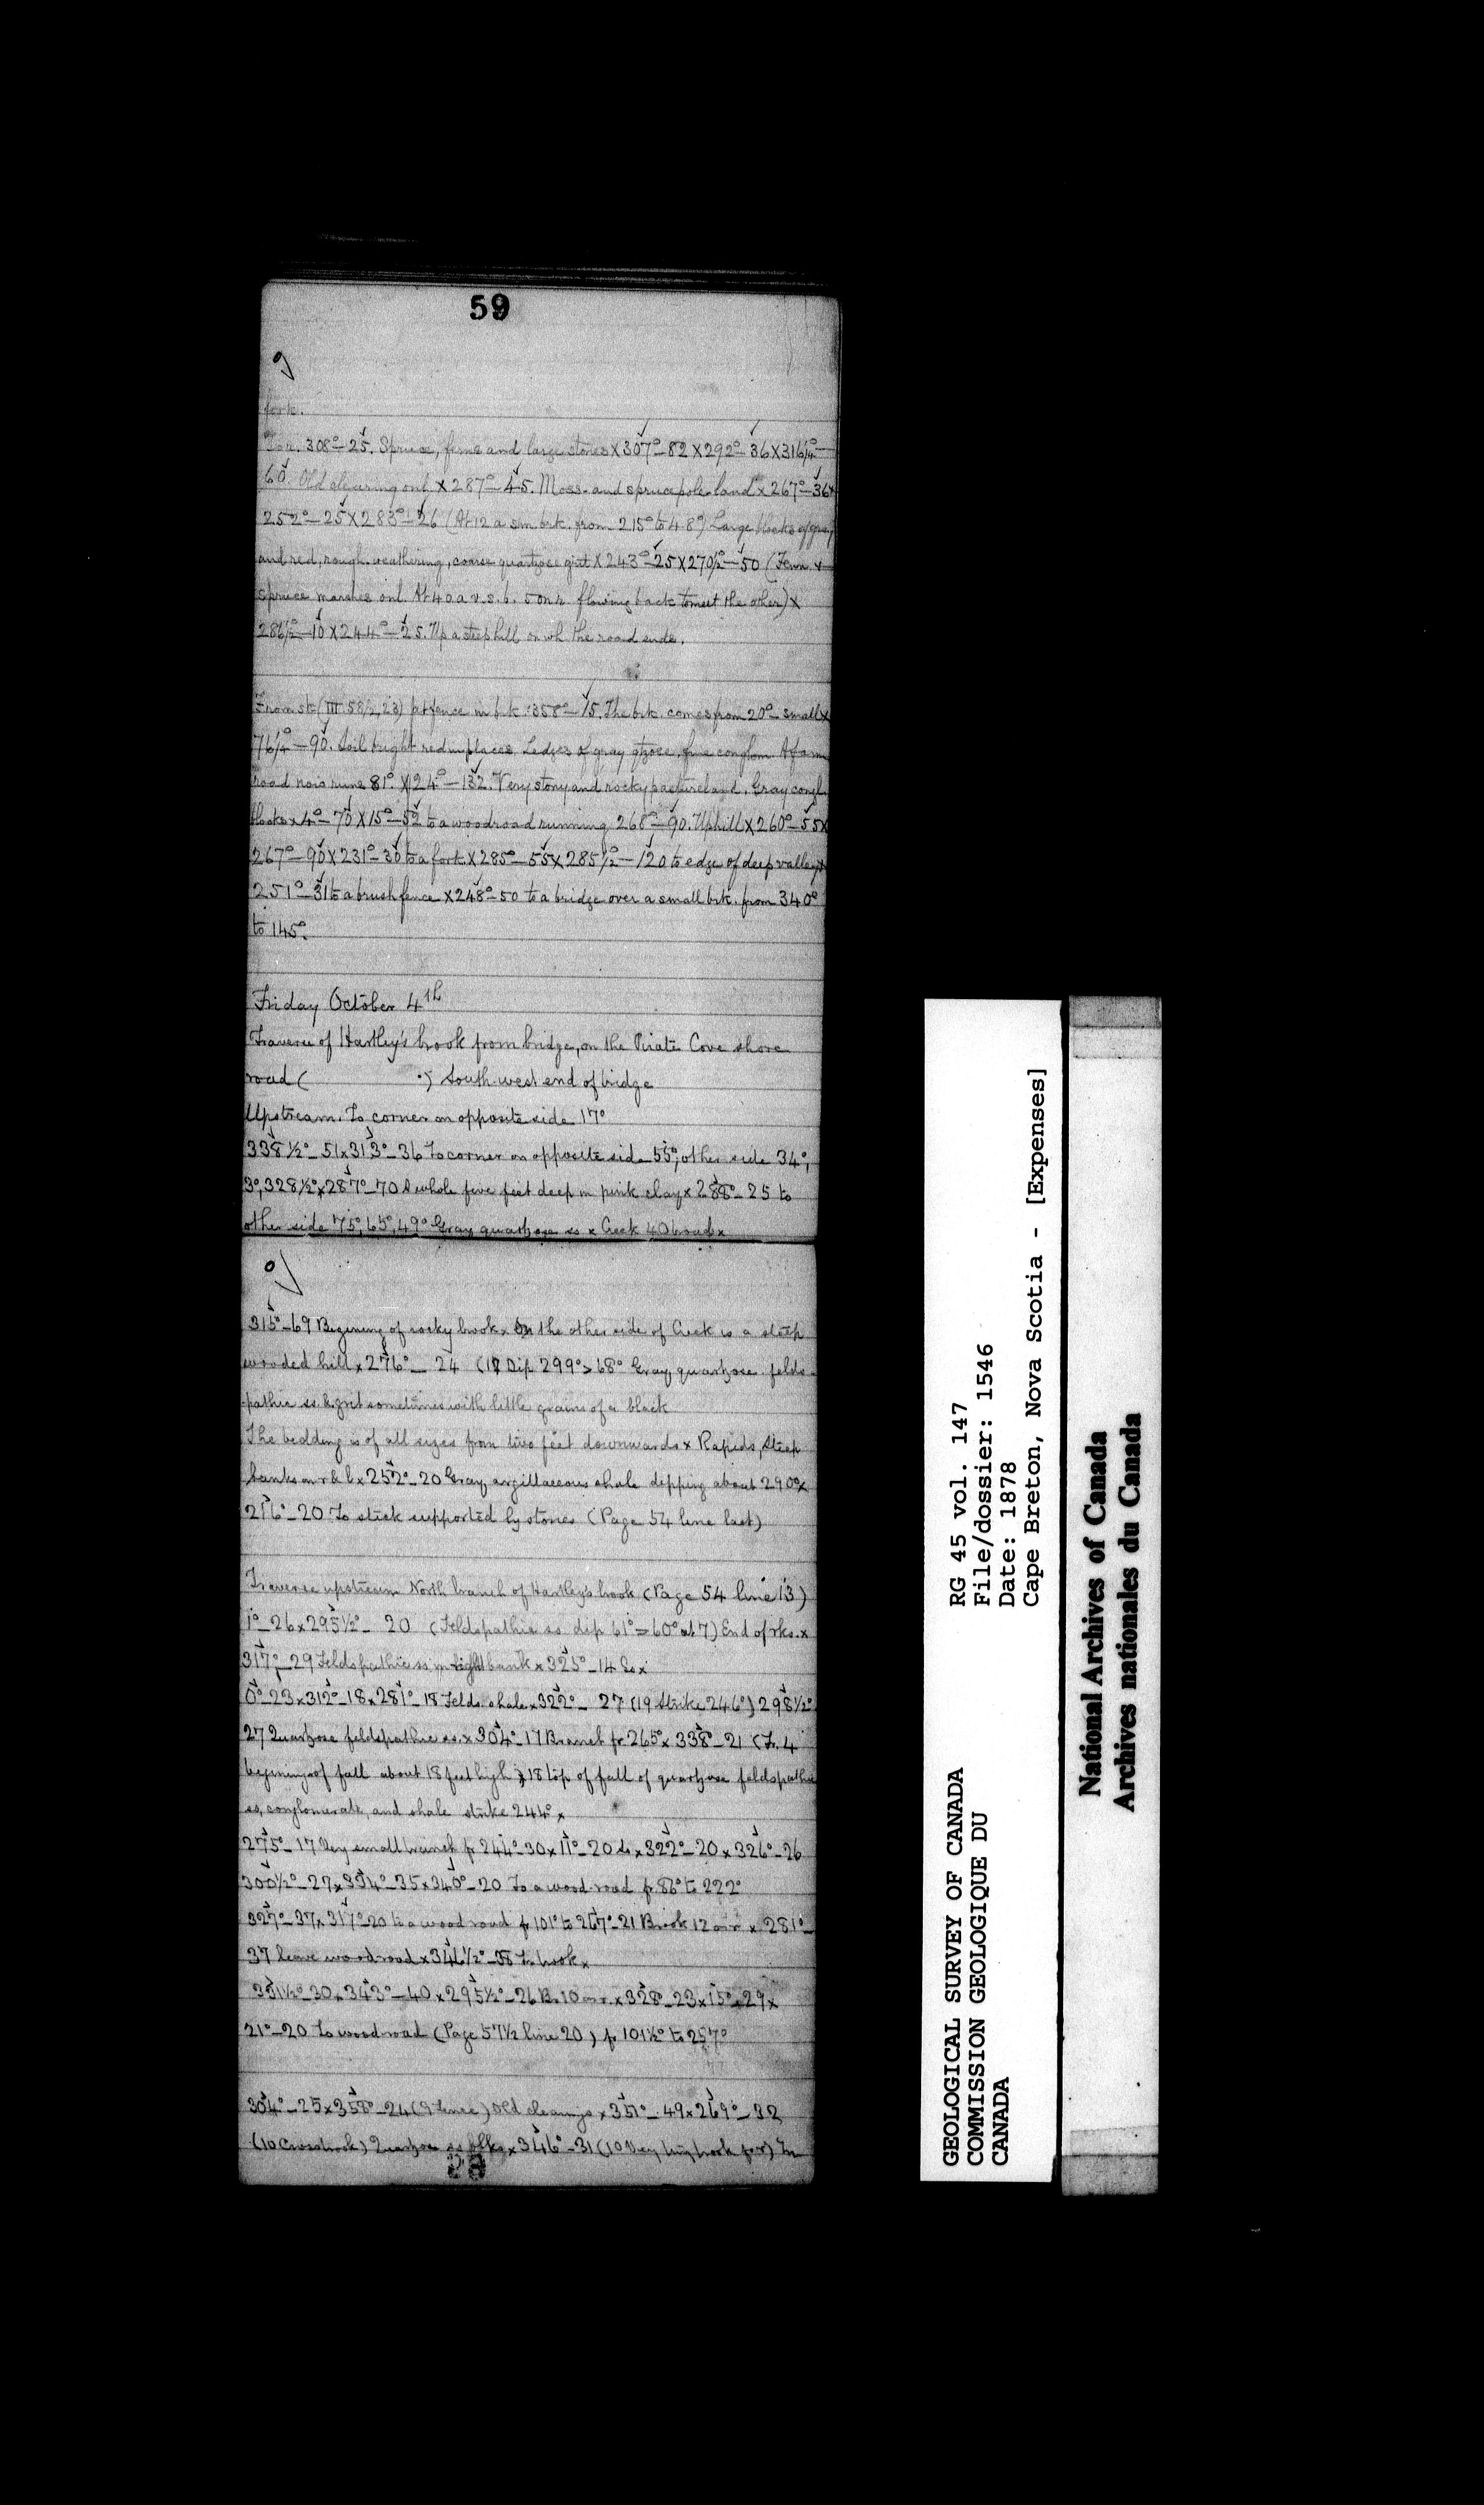 59
fork.
For. 308°-25. Spruce, ferns and large stones X 307°-82 X 292°-36 X 316¼°-
60. Old clearing onl. X 287°-45. Moss- and sprucepole-land X 267°-36 X
252°-25 X 283°-26 (At 12 a sm brk. from 215° to 48°) Large blocks of gray
and red, rough-weathering, coarse quartzose grit X 243°-25 X 270½°-50 (Fern &
spruce marshes onl. At 40 a v.s.b. 5 on r. flowing back to meet the other) X
286½°-10 X 244°-25. Up a steep hill on wh the road ends.
From st. (III. 58½, 23) at fence in brk. 358°-15. The brk. comes from 20°- small X
76¼°-90. Soil bright red in places. Ledges of gray qtzose, fine conglom. A farm
road now runs 81°. X 24°-132. Very stony and rocky pastureland. Gray congl.
blocks X 4°-70 X 15°-52 to a woodroad running 268°-90. Uphill X 260°-55 X
267°-90 X 231°-30 to a fork X 285°-55 X 285½°-120 to edge of deep valley X
251°-31 to a brush fence X 248°-50 to a bridge over a small brk. from 340°
to 145°.
Friday October 4th
Traverse of Hartley's brook from bridge, on the Pirate Cove shore
road ( .) South-west end of bridge
Upstream. To corner on opposite side 17°
338½°-51 x 313°-36 To corner on opposite side 55°; other side 34°,
3°, 328½° x 287°-70 A whole five feet deep in pink clay x 288°-25 to
other side 75°, 65°, 49° Gray quartzose ss x Creek 40 broad x
315°-69 Begining of rocky brook. On the other side of Creek is a steep
wooded hill x 276°-24 (17 Dip 299°>68° Gray, quartzose felds-
pathic ss. & grit sometimes with little grains of a black
The bedding is of all sizes from two feet downwards x Rapids, Steep
banks on r & l x 252°-20 Gray argillaceous shale dipping about 290° x
216°-20 To stick supported by stones (Page 54 line last)
Traverse upstream North branch of Hartley's brook (Page 54 line 13)
1°-26 x 295½°-20 (Feldspathic ss dip 61°=60° at 7) End of rks. x
317°-29 Feldspathic ss, in right bank x 325°-14 So x
0°-23 x 312°-18 x 281°-18 Felds. shale x 322°-27 (19 Strike 246°) 298½°
27 Quartzose feldspathic ss. x 304°-17 Branch fr 265° x 338°-21 (Fr. 4
begining of fall about 18 feet high) 18 top of fall of quartzose feldspathic
ss, conglomerate, and shale strike 244° x
275°-17 Very small branch fr 244°-30 x 11°-20 So x 322°-20 x 326°-26
300½°-27 x 334°-35 x 340°-20 To a wood-road fr. 86° to 222°
327°-37 x 317°-20 to a wood road fr 101° to 267°-21 Brook 12 on r x 281°-
37 leave woodroad x 346½°-38 To brook x
331½°-30 x 343°-40 x 295½°-26 Br. 10 on r x 328°-23 x 15°-29 x
21°-20 To woodroad (Page 57½ line 20) fr 101½° to 257°
304°-25 x 358°-24 (9 Fence) Old clearings x 351°-49 x 269°-32
(10 Cross brook) Quartzose ss blks x 346°-31 (10 Very tiny brook fr r)
GEOLOGICAL SURVEY OF CANADA
COMMISSION GEOLOGIQUE DU
CANADA
RG 45 vol. 147
File/dossier: 1546
Date: 1878
Cape Breton, Nova Scotia - [Expenses]
National Archives of Canada
Archives nationales du Canada